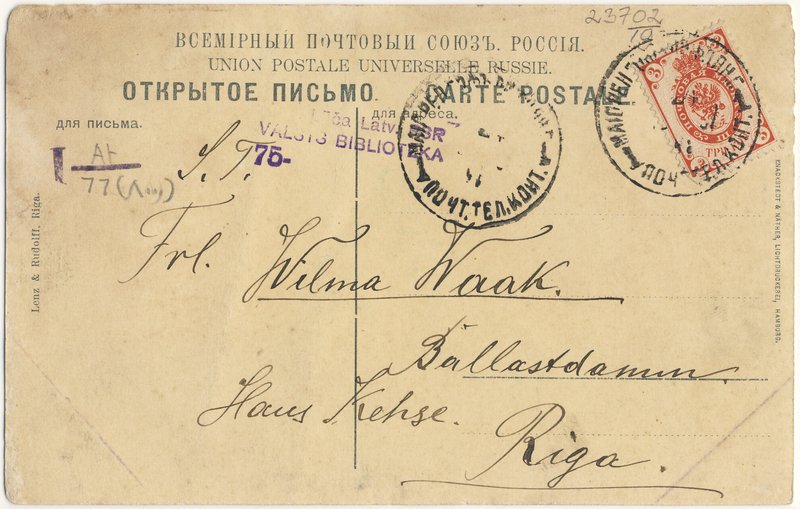 23702
ВСЕМІРНЫЙ ПОЧТОВЫЙ СОЮЗЪ. РОССІЯ.
UNION POSTALE UNIVERSELLE RUSSIE.
ОТКРЫТОЕ ПИСЬМО. CARTE POSTALE.
для письма.
для адреса.
Latv. SSR
VALSTS BIBLIOTEKA
75-
ПОЧТ.ТЕЛ.КОНТ.
3
ТРИ
77
S. T.
Frl. Wilma Waak.
Ballastdamm.
Haus Kehse.
Riga.
Lenz & Rudolff, Riga.
KNACKSTEDT & NÄTHER, LICHTDRUCKEREI, HAMBURG.